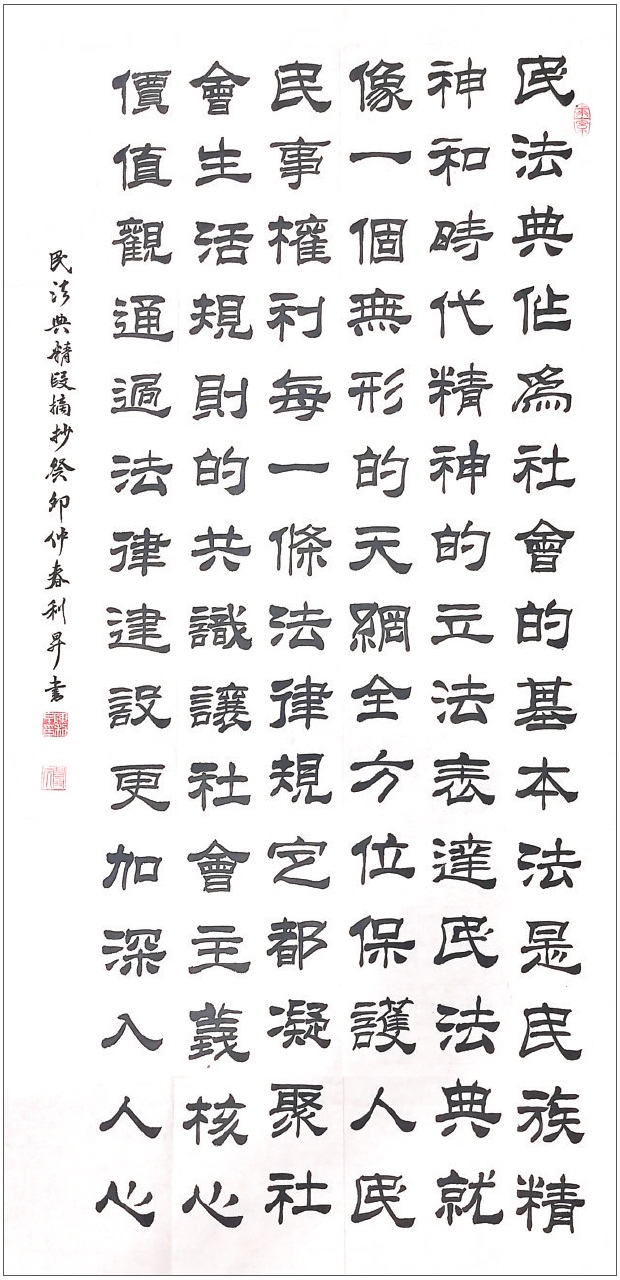 民法典作為社會的基本法是民族精
神和時代精神的立法表達民法典就
像一個無形的天網全方位保護人民
民事權利每一條法律規定都凝聚社
會生活規則的共識讓社會主義核心
價值觀通過法律建設更加深入人心
民法典精段摘抄癸卯仲春利昇書